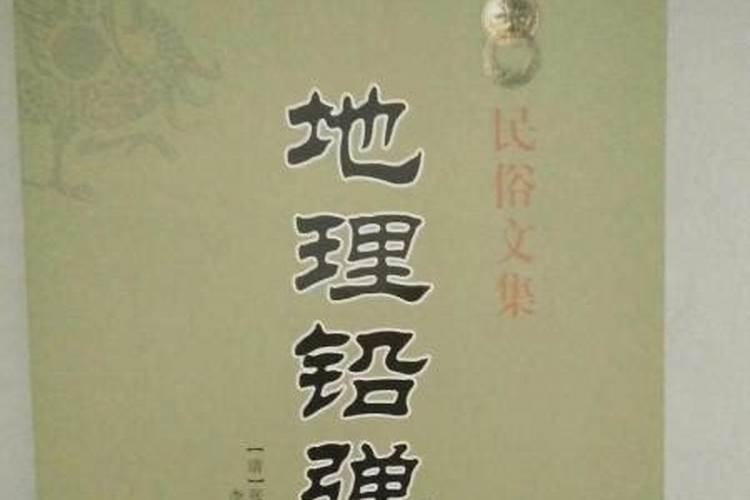 民俗文集
地理铅弹
【清】张
李